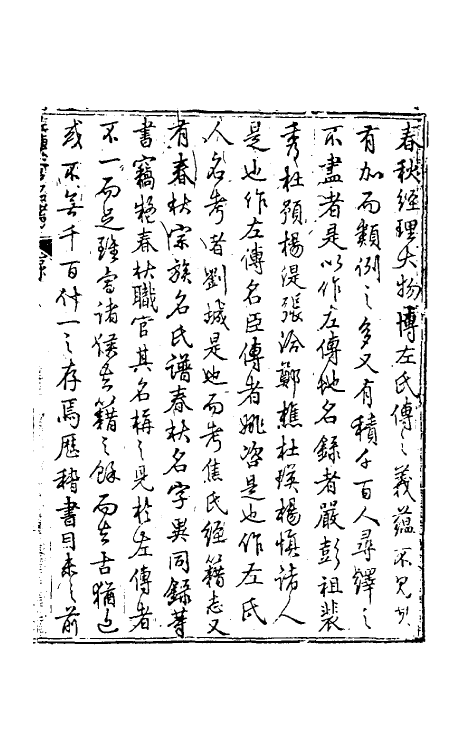 春秋經理大物博左氏傳之義蘊不見
有加而類例之多又有積千百人尋繹之
不盡者是以作左傳地名錄者嚴彭祖裴
秀杜預楊湜張洽鄭樵杜瑛楊慎諸人
是也作左傳名臣傳者姚咨是也作左氏
人名考者劉城是也而考焦氏經籍志又
有春秋宗族名氏譜春秋名字異同錄等
書竊嘗春秋職官其名稱之見於左傳者
不一而足雖當諸侯去籍之餘而去古猶近
或不無千百什一之存焉歷稽書目未之前